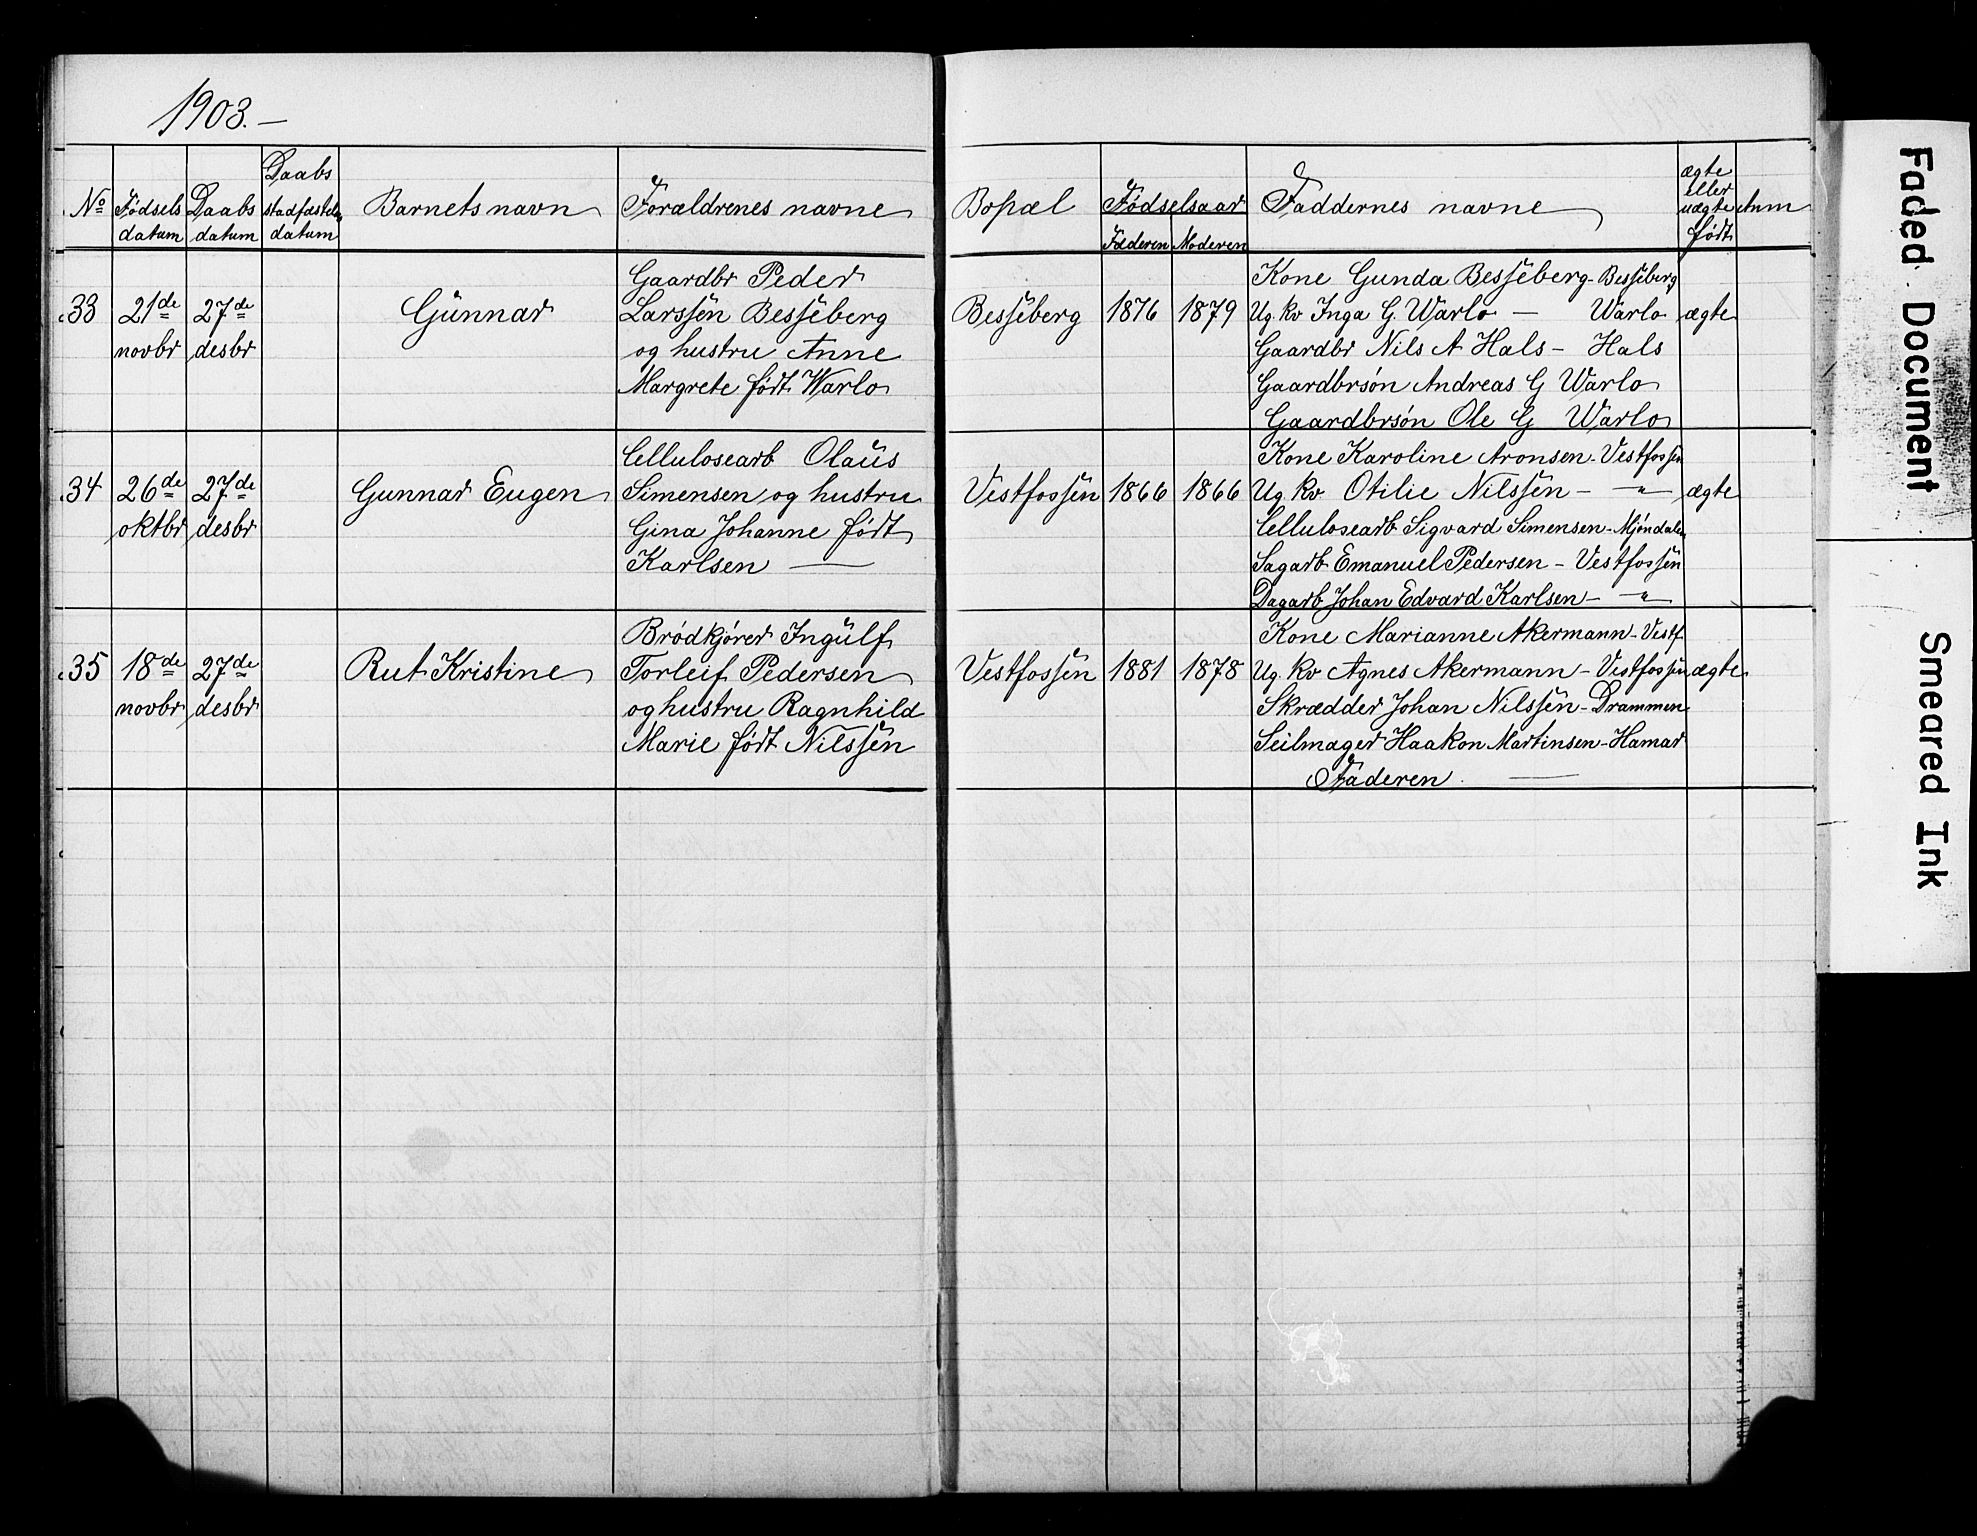 1903.—
No
Fødsels datum
Daabs datum
Daabs stadfæstels datum
Barnets navn
Forældrenes navne
Bopæl
Fødselsaar
Faderen Moderen
Faddernes navne
ægte eller uægte født
Anm
33
21de novbr
27de desbr
Gunnar
Gaardbr Peder
Larssen Besseberg
og hustru Anne
Margrete født Warlo
Besseberg
1876
1879
Kone Gunda Besseberg - Besseberg
Ug. kv Inga G. Warlo — Warlo
Gaardbr Nils A Hals - Hals
Gaardbrsøn Andreas G Warlo
Gaardbrsøn Ole G Warlo
ægte
34
26de oktbr
27de desbr
Gunnar Eugen
Cellulosearb Olaus
Simensen og hustru
Gina Johanne født
Karlsen —
Vestfossen
1866
1866
Kone Karoline Aronsen - Vestfossen
Ug. kv. Otilie Nilssen - —"—
Cellulosearb Sigvard Simensen - Mjøndalen
Sagarb Emanuel Pedersen - Vestfossen
Dagarb Johan Edvard Karlsen - —"—
ægte
35
18de novbr
27de desbr
Rut Kristine
Brødkjører Ingulf
Torleif Pedersen
og hustru Ragnhild
Marie født Nilssen
Vestfossen
1881
1878
Kone Marianne Akermann - Vestf.
Ug. kv Agnes Akermann - Vestfossen
Skrædder Johan Nilssen - Drammen
Seilmager Haakon Martinsen - Hamar
Faderen. —
ægte
Faded Document
Smeared Ink